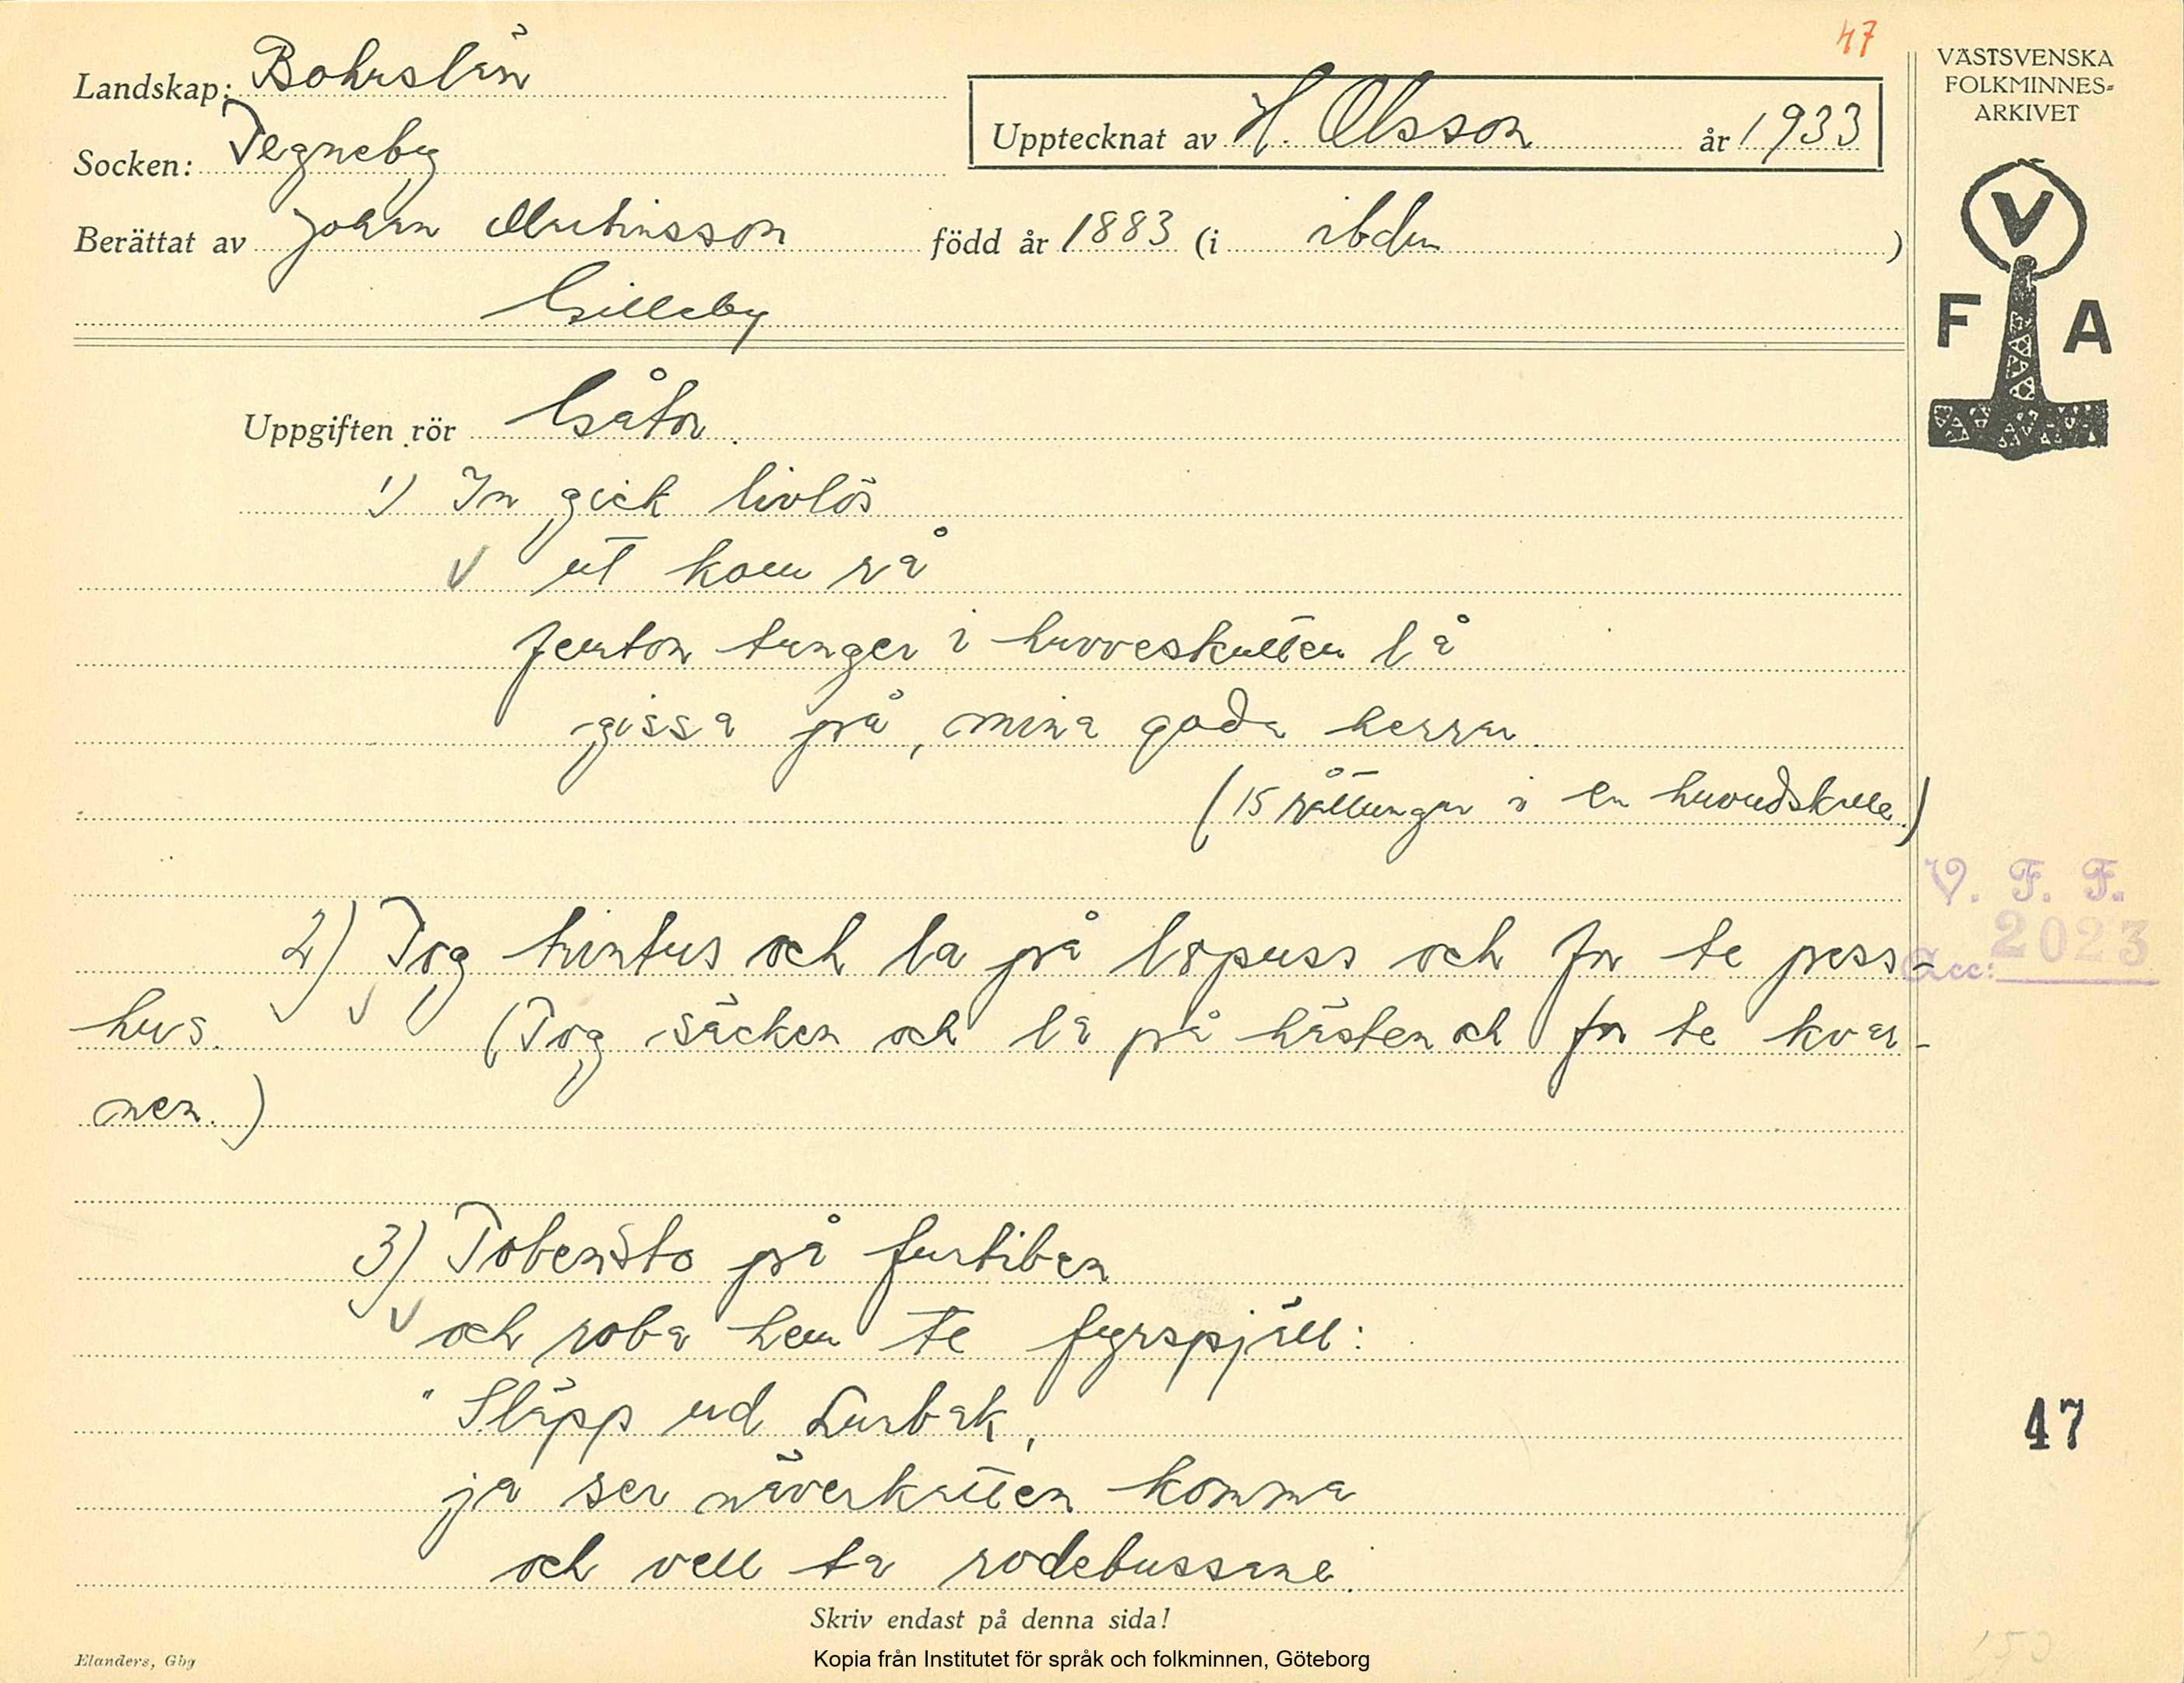 47
Landskap: Bohuslän
Socken: Tegneby
Upptecknat av H. Olsson år 1933
Berättat av Johan Martinsson född år 1883 (i ibdm)
Gilleby
VÄSTSVENSKA
FOLKMINNES-
ARKIVET
V
F A
Uppgiften rör Gåtor.
1) In gick livlös
ut kom rå
femton tunger i huvveskutten lå
gissa på, mina goda herrar.
(15 råttungar i en huvudskalle.)
V. F. F.
Acc: 2023
2) Tog hintus och la på lopuss och for te pess-
hus. (Tog säcken och la på hästen och for te kvar-
nen.)
3) Tobensto på furtiben
och roba hem te fyrspjäll:
"Släpp ud Lurbak,
ja ser näverkatten komma
och vell ta rodebussane.
47
Skriv endast på denna sida!
Elanders, Gbg
Kopia från Institutet för språk och folkminnen, Göteborg
150